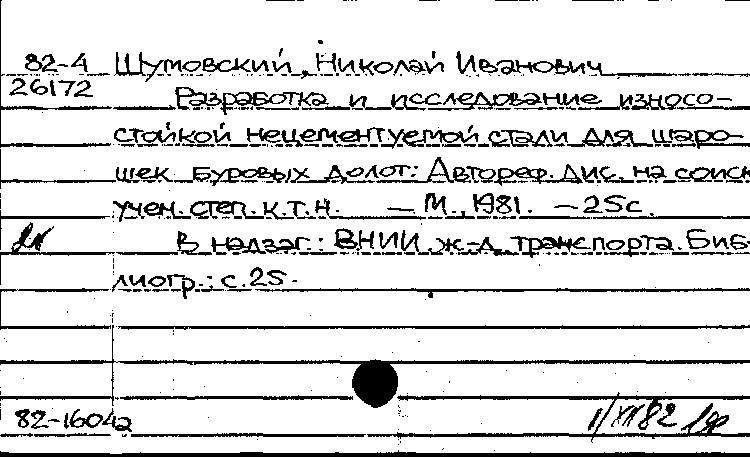 82-4 Шумовский, Николай Иванович
26172 Разработка и исследование износо-
стойкой нецементуемой стали для шаро-
шек буровых долот: Автореф. дис. на соиск
учен. степ. к.т.н. — М., 1981. — 25с.
В надзаг.: ВНИИ ж-д транспорта. Биб-
лиогр.: с.25.
82-16042 1/XII 82